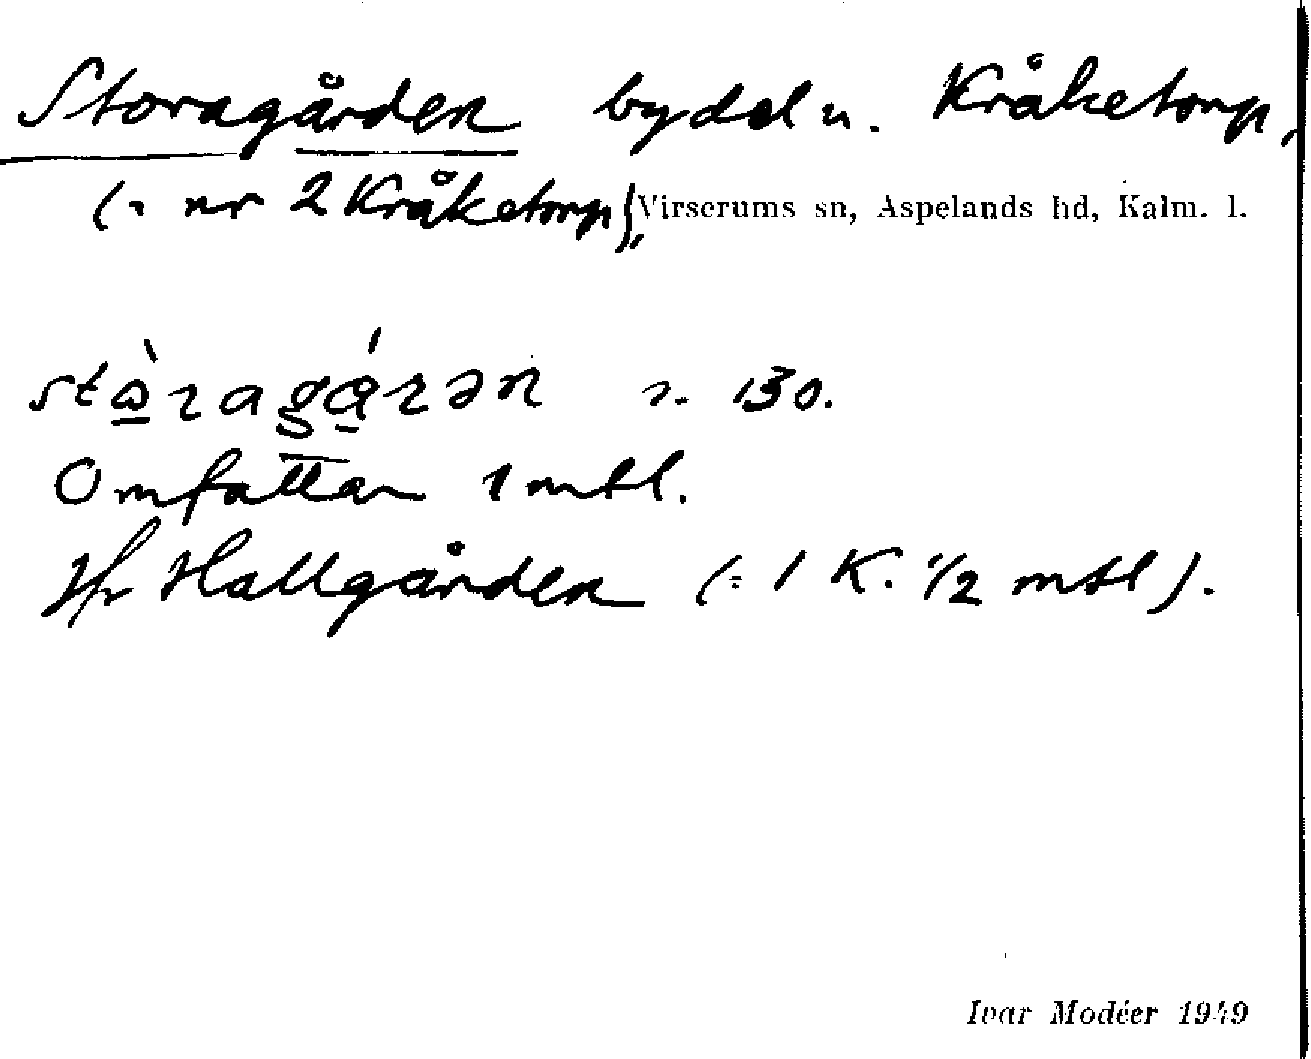 Storagården bydel u. Kråketorp,
(= nr 2 Kråketorp), Virserums sn, Aspelands hd, Kalm. l.
130.
Omfattar 1 mtl.
Jfr Hallgården (= 1 K. 1/2 mtl).
Ivar Modéer 1949